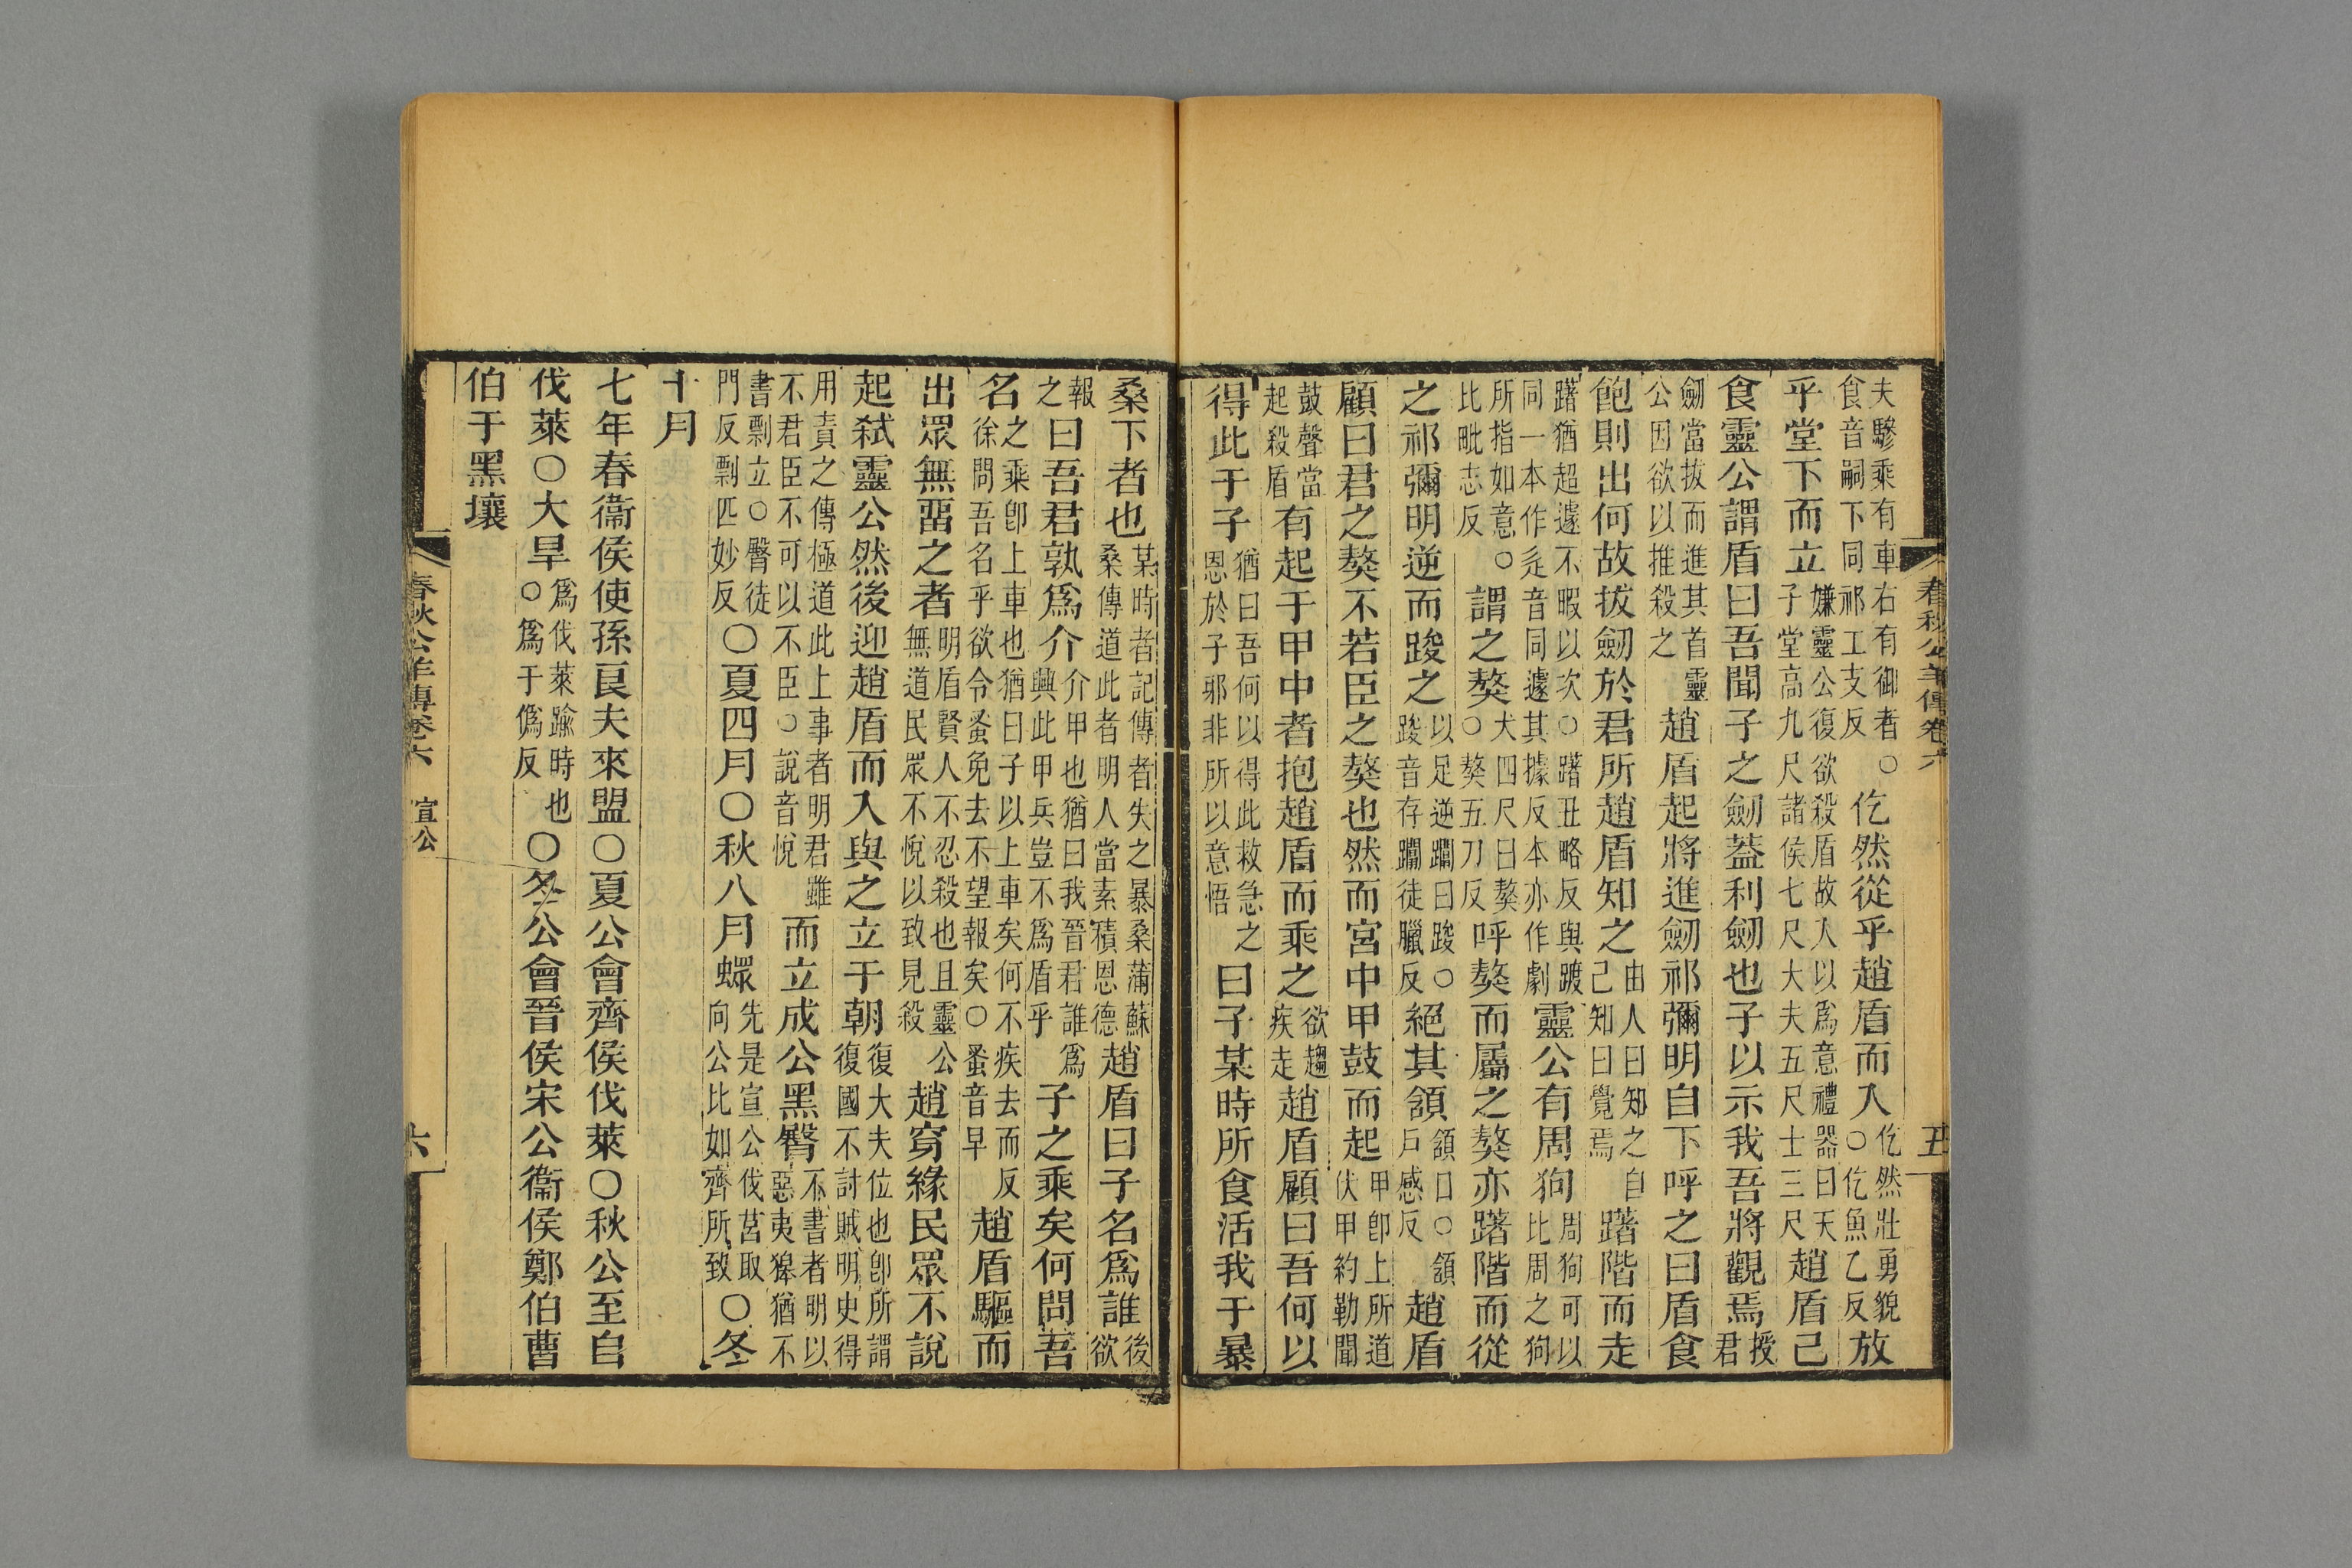 春秋公羊傳卷六　五
夫驂乘有車右有御者○食音嗣下同祁工支反仡然從乎趙盾而入仡然壯勇貌○仡魚乙反放
乎堂下而立嫌靈公復欲殺盾故入以爲意禮器曰天子堂高九尺諸侯七尺大夫五尺士三尺趙盾已
食靈公謂盾曰吾聞子之劒蓋利劒也子以示我吾將觀焉授君
劒當拔而進其首靈公因欲以推殺之趙盾起將進劒祁彌明自下呼之曰盾食
飽則出何故拔劒於君所趙盾知之由人曰知之自己知曰覺焉躇階而走
躇猶超遽不暇以次○躇丑略反與踱同一本作辵音同遽其據反本亦作劇靈公有周狗周狗可以比周之狗
所指如意○比毗志反謂之獒犬四尺曰獒○獒五刀反呼獒而屬之獒亦躇階而從
之祁彌明逆而踆之以足逆躢曰踆○踆音存躢徒臘反絕其頷頷口○頷戶感反趙盾
顧曰君之獒不若臣之獒也然而宮中甲鼓而起甲卽上所道伏甲約勒聞
鼓聲當起殺盾有起于甲中者抱趙盾而乘之欲趨疾走趙盾顧曰吾何以
得此于子猶曰吾何以得此救急之恩於子邪非所以意悟曰子某時所食活我于暴
桑下者也某時者記傳者失之暴桑蒲蘇桑傳道此者明人當素積恩德趙盾曰子名爲誰後欲
報之曰吾君孰爲介介甲也猶曰我晉君誰爲興此甲兵豈不爲盾乎子之乘矣何問吾
名之乘卽上車也猶曰子以上車矣何不疾去而反徐問吾名乎欲令蚤免去不望報矣○蚤音早趙盾驅而
出眾無留之者明盾賢人不忍殺也且靈公無道民眾不悅以致見殺趙穿緣民眾不說
起弒靈公然後迎趙盾而入與之立于朝復大夫位也卽所謂復國不討賊明史得
用責之傳極道此上事者明君雖不君臣不可以不臣○說音悅而立成公黑臀不書者明以惡夷獋猶不
書剽立○臀徒門反剽匹妙反○夏四月○秋八月螺先是宣公伐莒取向公比如齊所致○冬
十月
七年春衞侯使孫良夫來盟○夏公會齊侯伐萊○秋公至自
伐萊○大旱爲伐萊踰時也○爲于僞反○冬公會晉侯宋公衞侯鄭伯曹
伯于黑壤
春秋公羊傳卷六　宣公　六